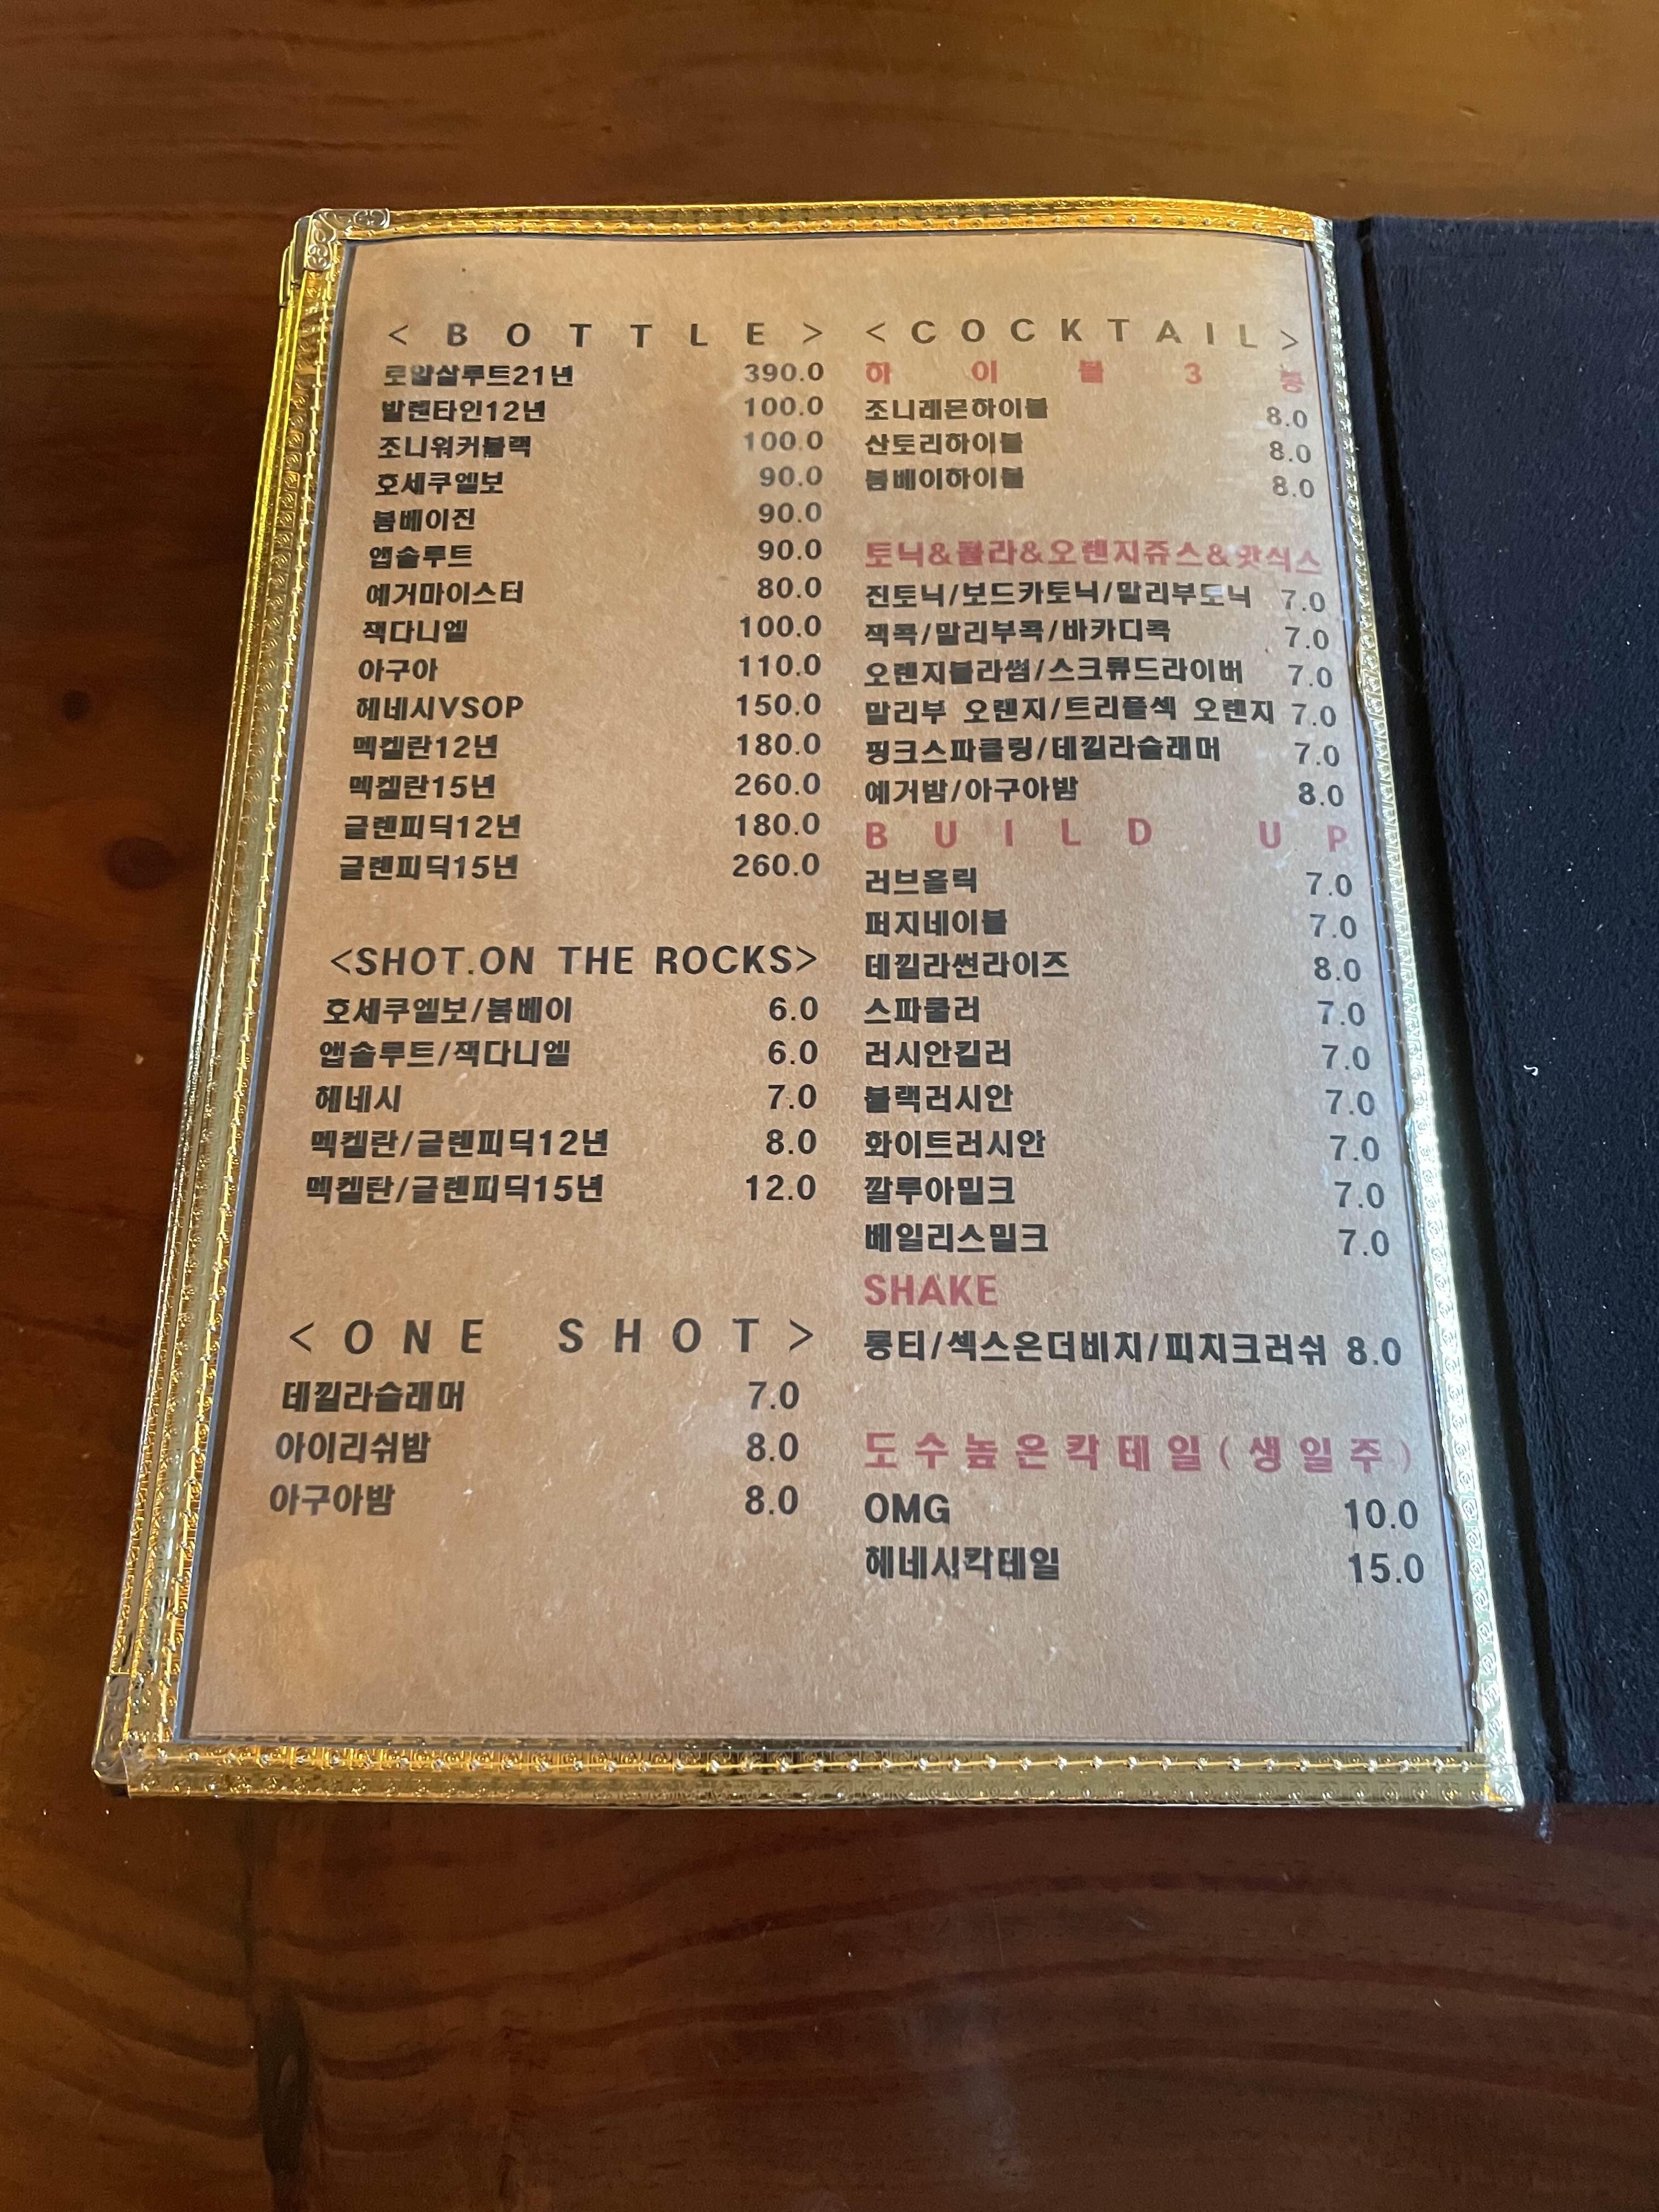 <BOTTLE>
로얄살루트21년 390.0
발렌타인12년 100.0
조니워커블랙 100.0
호세쿠엘보 90.0
봄베이진 90.0
앱솔루트 90.0
예거마이스터 80.0
잭다니엘 100.0
아구아 110.0
헤네시VSOP 150.0
멕켈란12년 180.0
멕켈란15년 260.0
글렌피딕12년 180.0
글렌피딕15년 260.0
<SHOT.ON THE ROCKS>
호세쿠엘보/봄베이 6.0
앱솔루트/잭다니엘 6.0
헤네시 7.0
멕켈란/글렌피딕12년 8.0
멕켈란/글렌피딕15년 12.0
<ONE SHOT>
데낄라슬래머 7.0
아이리쉬밤 8.0
아구아밤 8.0
<COCKTAIL>
하이볼3종
조니레몬하이볼 8.0
산토리하이볼 8.0
봄베이하이볼 8.0
토닉&콜라&오렌지쥬스&핫식스
진토닉/보드카토닉/말리부토닉 7.0
잭콕/말리부콕/바카디콕 7.0
오렌지블라썸/스크류드라이버 7.0
말리부 오렌지/트리플섹 오렌지 7.0
핑크스파클링/데낄라슬래머 7.0
예거밤/아구아밤 8.0
BUILD UP
러브홀릭 7.0
퍼지네이블 7.0
데낄라썬라이즈 8.0
스파쿨러 7.0
러시안킬러 7.0
블랙러시안 7.0
화이트러시안 7.0
깔루아밀크 7.0
베일리스밀크 7.0
SHAKE
롱티/섹스온더비치/피치크러쉬 8.0
도수높은칵테일(생일주)
OMG 10.0
헤네시칵테일 15.0